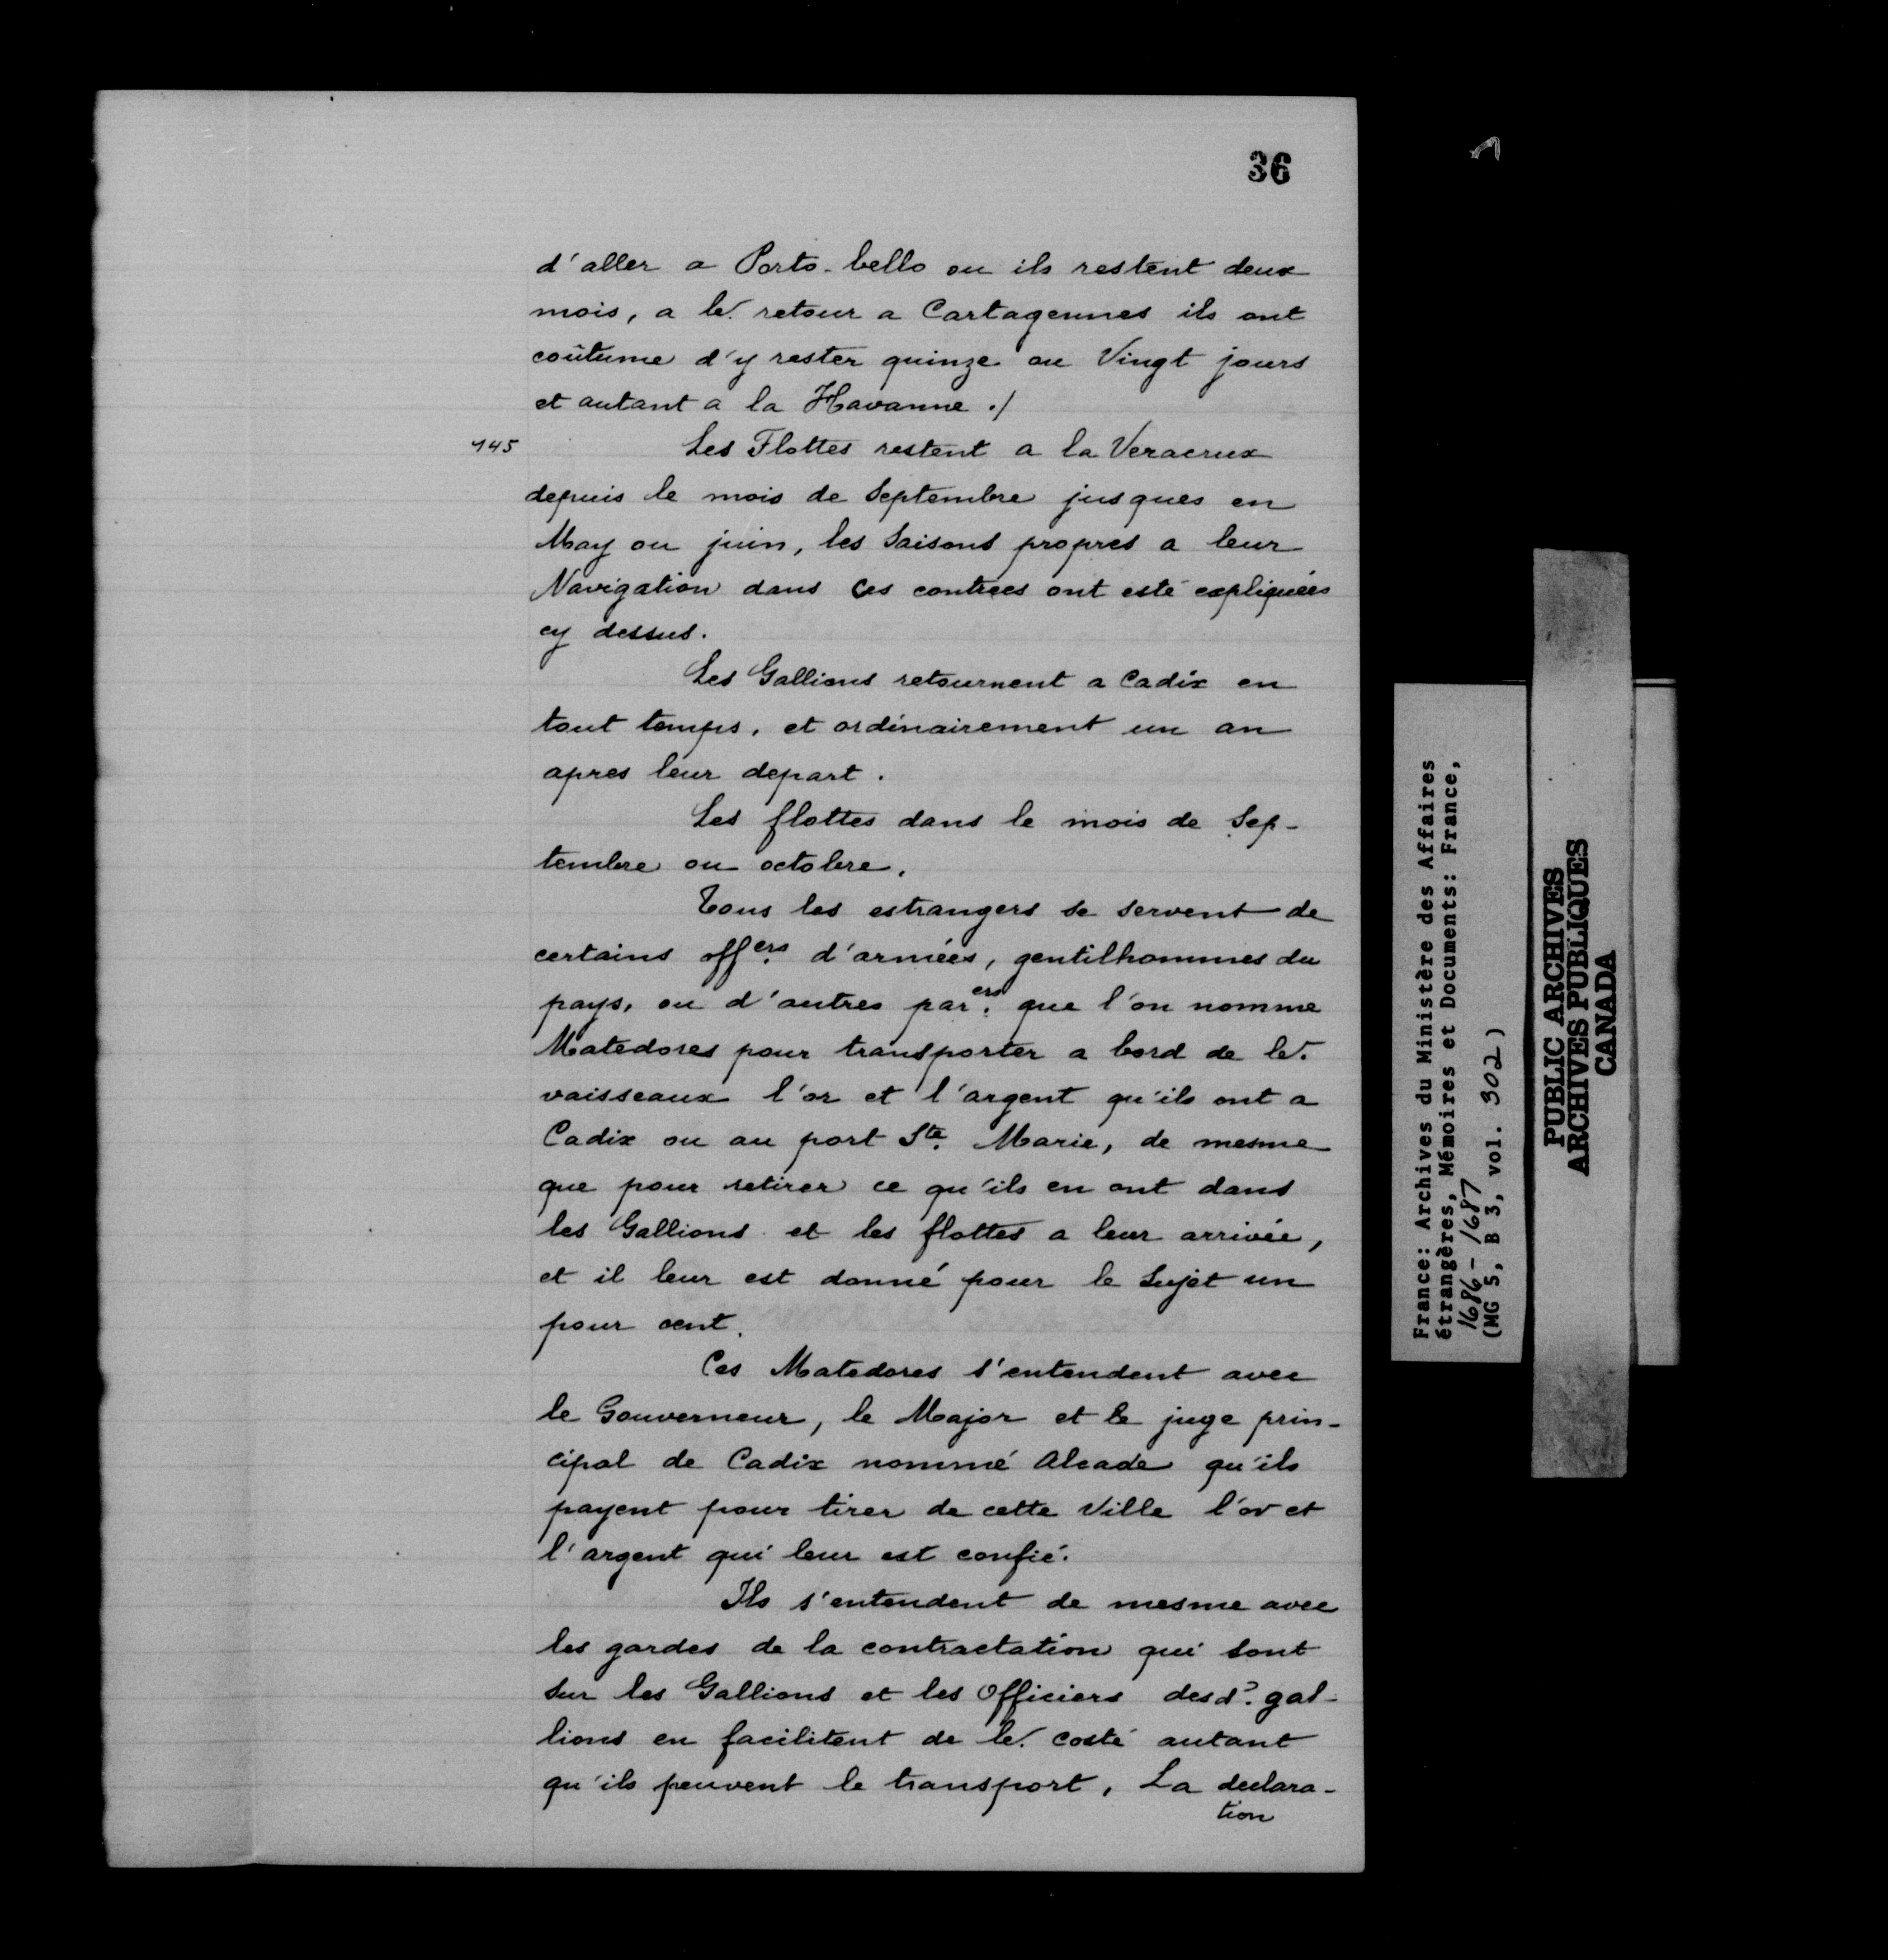 36
d'aller a Porto-bello ou ils restent deux
mois, a lr. retour a Cartagennes ils ont
coûtume d'y rester quinze ou Vingt jours
et autant a la Havanne ./
145
Les Flottes restent a la Veracrux
depuis le mois de Septembre jusques en
May ou juin, les Saisons propres a leur
Navigation dans ces contrees ont esté expliquées
cy dessus.
Les Gallions retournent a Cadix en
tout temps, et ordinairement un an
apres leur depart.
Les flottes dans le mois de Sep-
tembre ou octobre.
Tous les estrangers se servent de
certains offers. d'armées, gentilhommes du
pays, ou d'autres parers. que l'on nomme
Matedores pour transporter a bord de lr.
vaisseaux l'or et l'argent qu'ils ont a
Cadix ou au port Ste. Marie, de mesme
que pour retirer ce qu'ils en ont dans
les Gallions et les flottes a leur arrivée,
et il leur est donné pour le Sujet un
pour cent.
Ces Matedores s'entendent avec
le Gouverneur, le Major et le juge prin-
cipal de Cadix nommé Alcade qu'ils
payent pour tirer de cette Ville l'or et
l'argent qui leur est confié.
Ils s'entendent de mesme avec
les gardes de la contractation qui sont
sur les Gallions et les Officiers desd?. gal-
lions en facilitent de lr. costé autant
qu'ils peuvent le transport, La declara-
tion
France: Archives du Ministère des Affaires
étrangères, Mémoires et Documents: France,
1686-1687
(MG 5, B 3, vol. 302)
PUBLIC ARCHIVES
ARCHIVES PUBLIQUES
CANADA